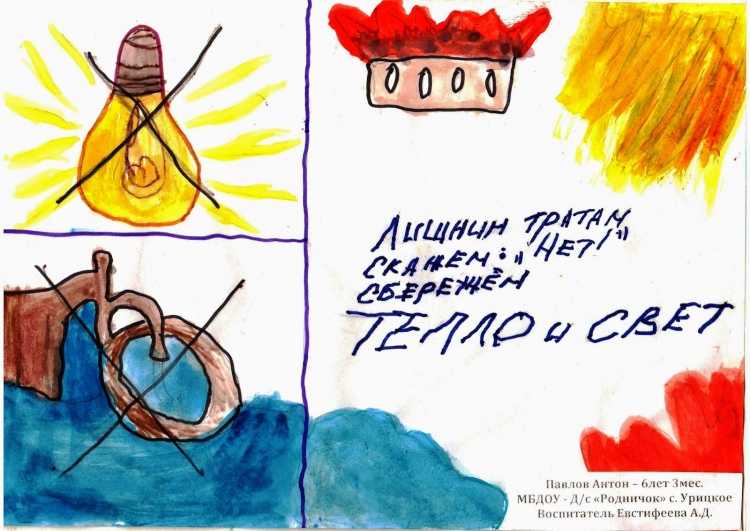 Лишнин тратам
скажем: „Нет!"
сбережём
ТЕПЛО и СВЕТ
Павлов Антон – 6лет 3мес.
МБДОУ - Д/с «Родничок» с. Урицкое
Воспитатель Евстифеева А.Д.